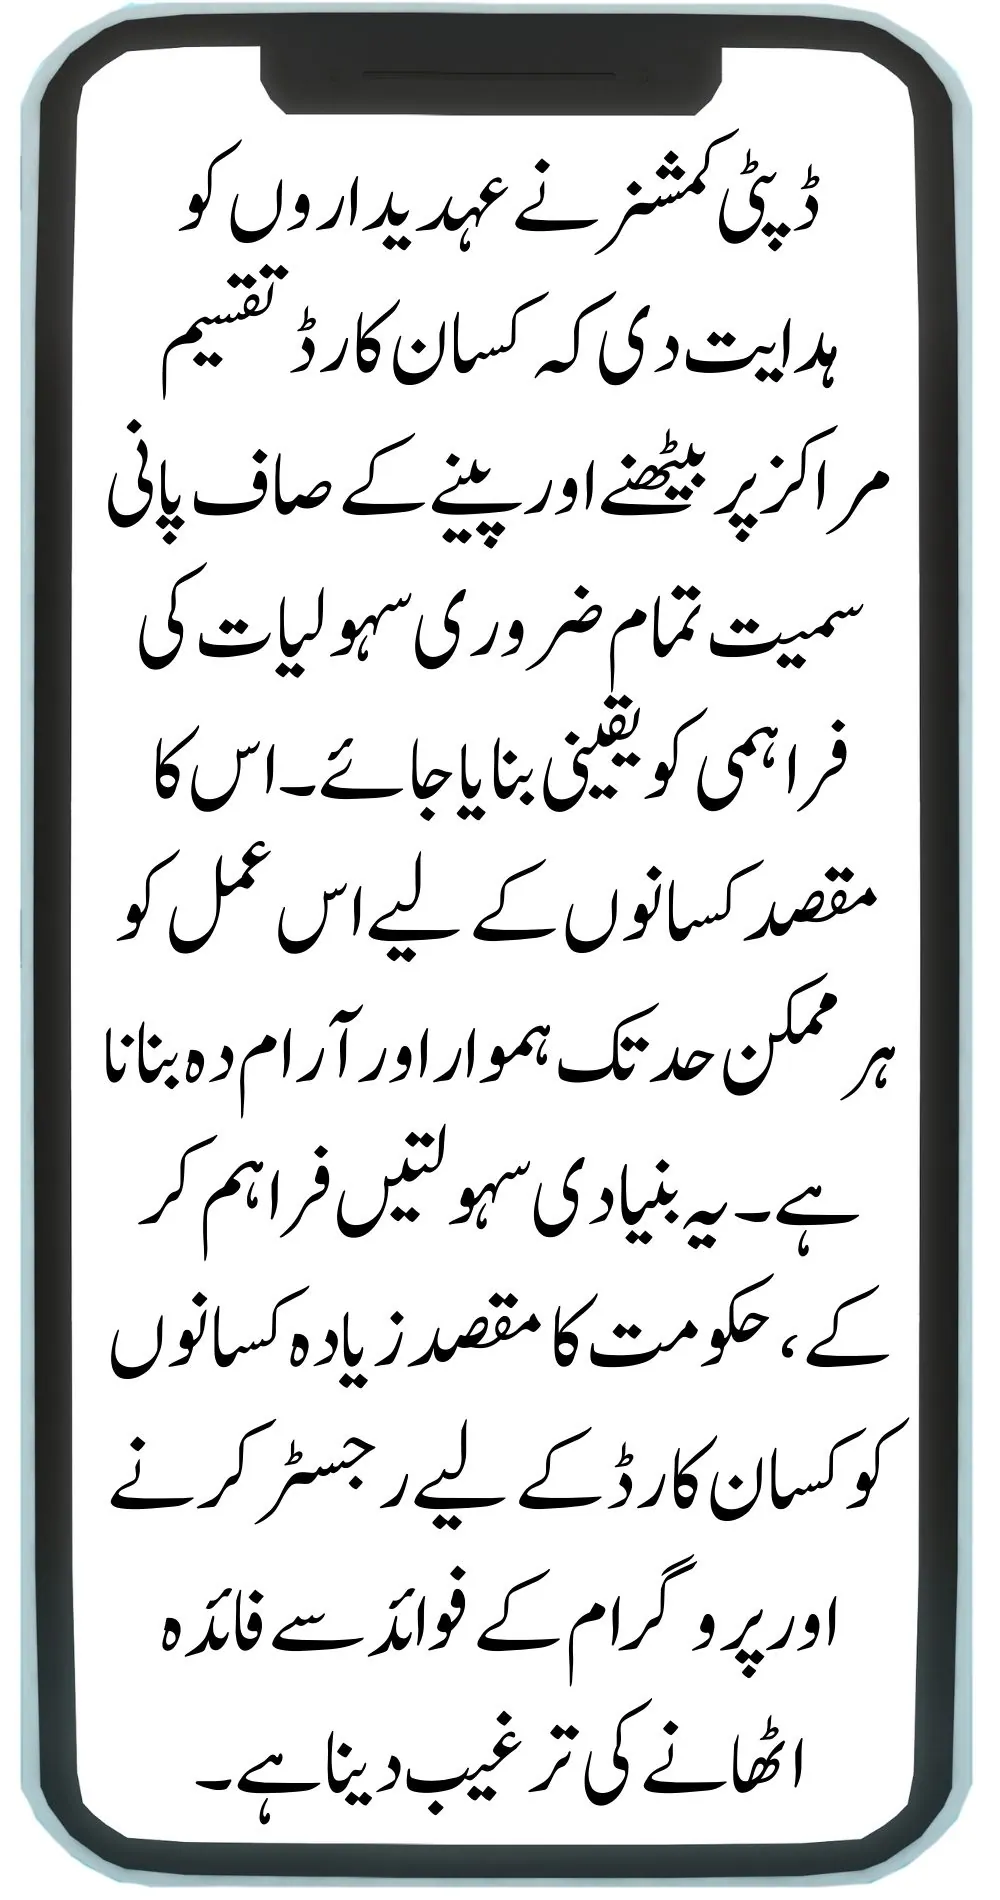 ڈپٹی کمشنر نے عہدیداروں کو
ہدایت دی کہ کسان کارڈ تقسیم
مراکز پر بیٹھنے اور پینے کے صاف پانی
سمیت تمام ضروری سہولیات کی
فراہمی کو یقینی بنایا جائے۔ اس کا
مقصد کسانوں کے لیے اس عمل کو
ہر ممکن حد تک ہموار اور آرام دہ بنانا
ہے۔ یہ بنیادی سہولتیں فراہم کر
کے، حکومت کا مقصد زیادہ کسانوں
کو کسان کارڈ کے لیے رجسٹر کرنے
اور پروگرام کے فوائد سے فائدہ
اٹھانے کی ترغیب دینا ہے۔